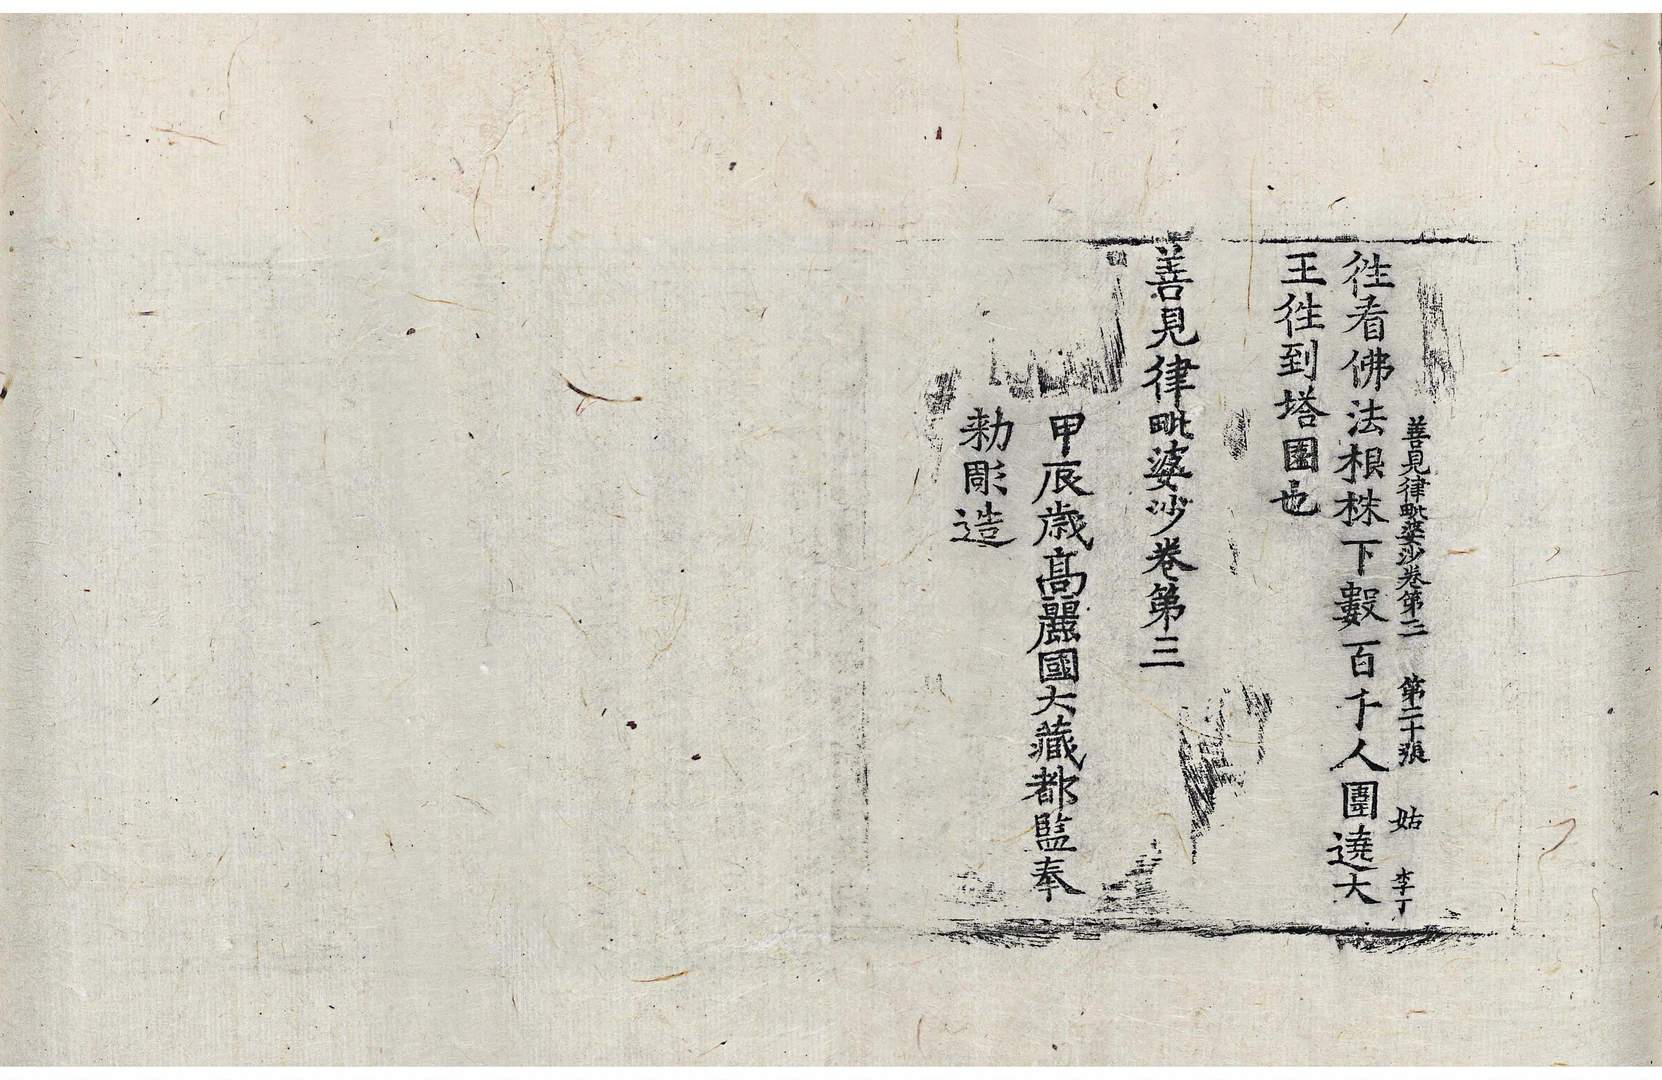 善見律毗婆沙卷第三 第二十張 姑 李丁
徃看佛法根株下數百千人團遶大
王徃到塔園也
善見律毗婆沙卷第三
甲辰歲高麗國大藏都監奉
勑彫造